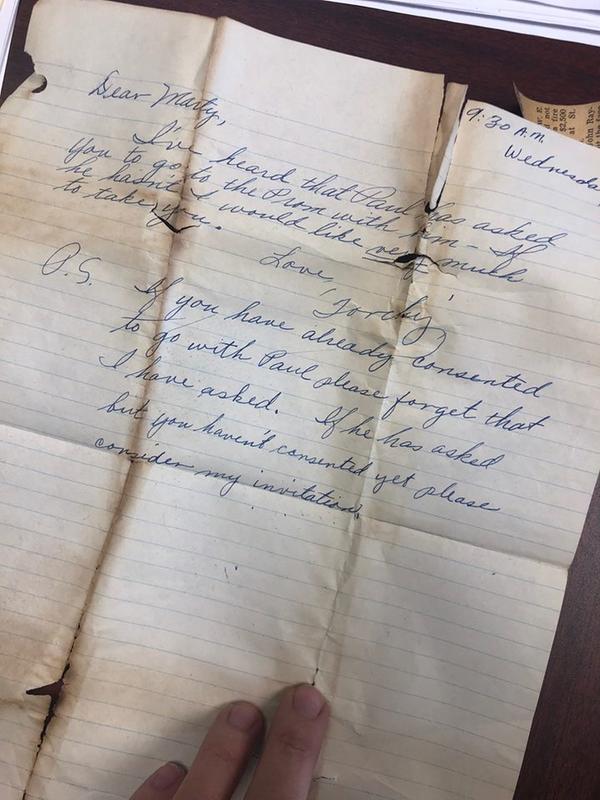 9:30 A.M.
Wednesday
Dear Marty,
I've heard that Paul has asked
you to go to the Prom with him - If
he hasn't I would like very much
to take you.
Love,
'Torchy'
P.S. If you have already consented
to go with Paul please forget that
I have asked. If he has asked
but you haven't consented yet please
consider my invitation.
not
fire
$2,500
at St.
John Ray-